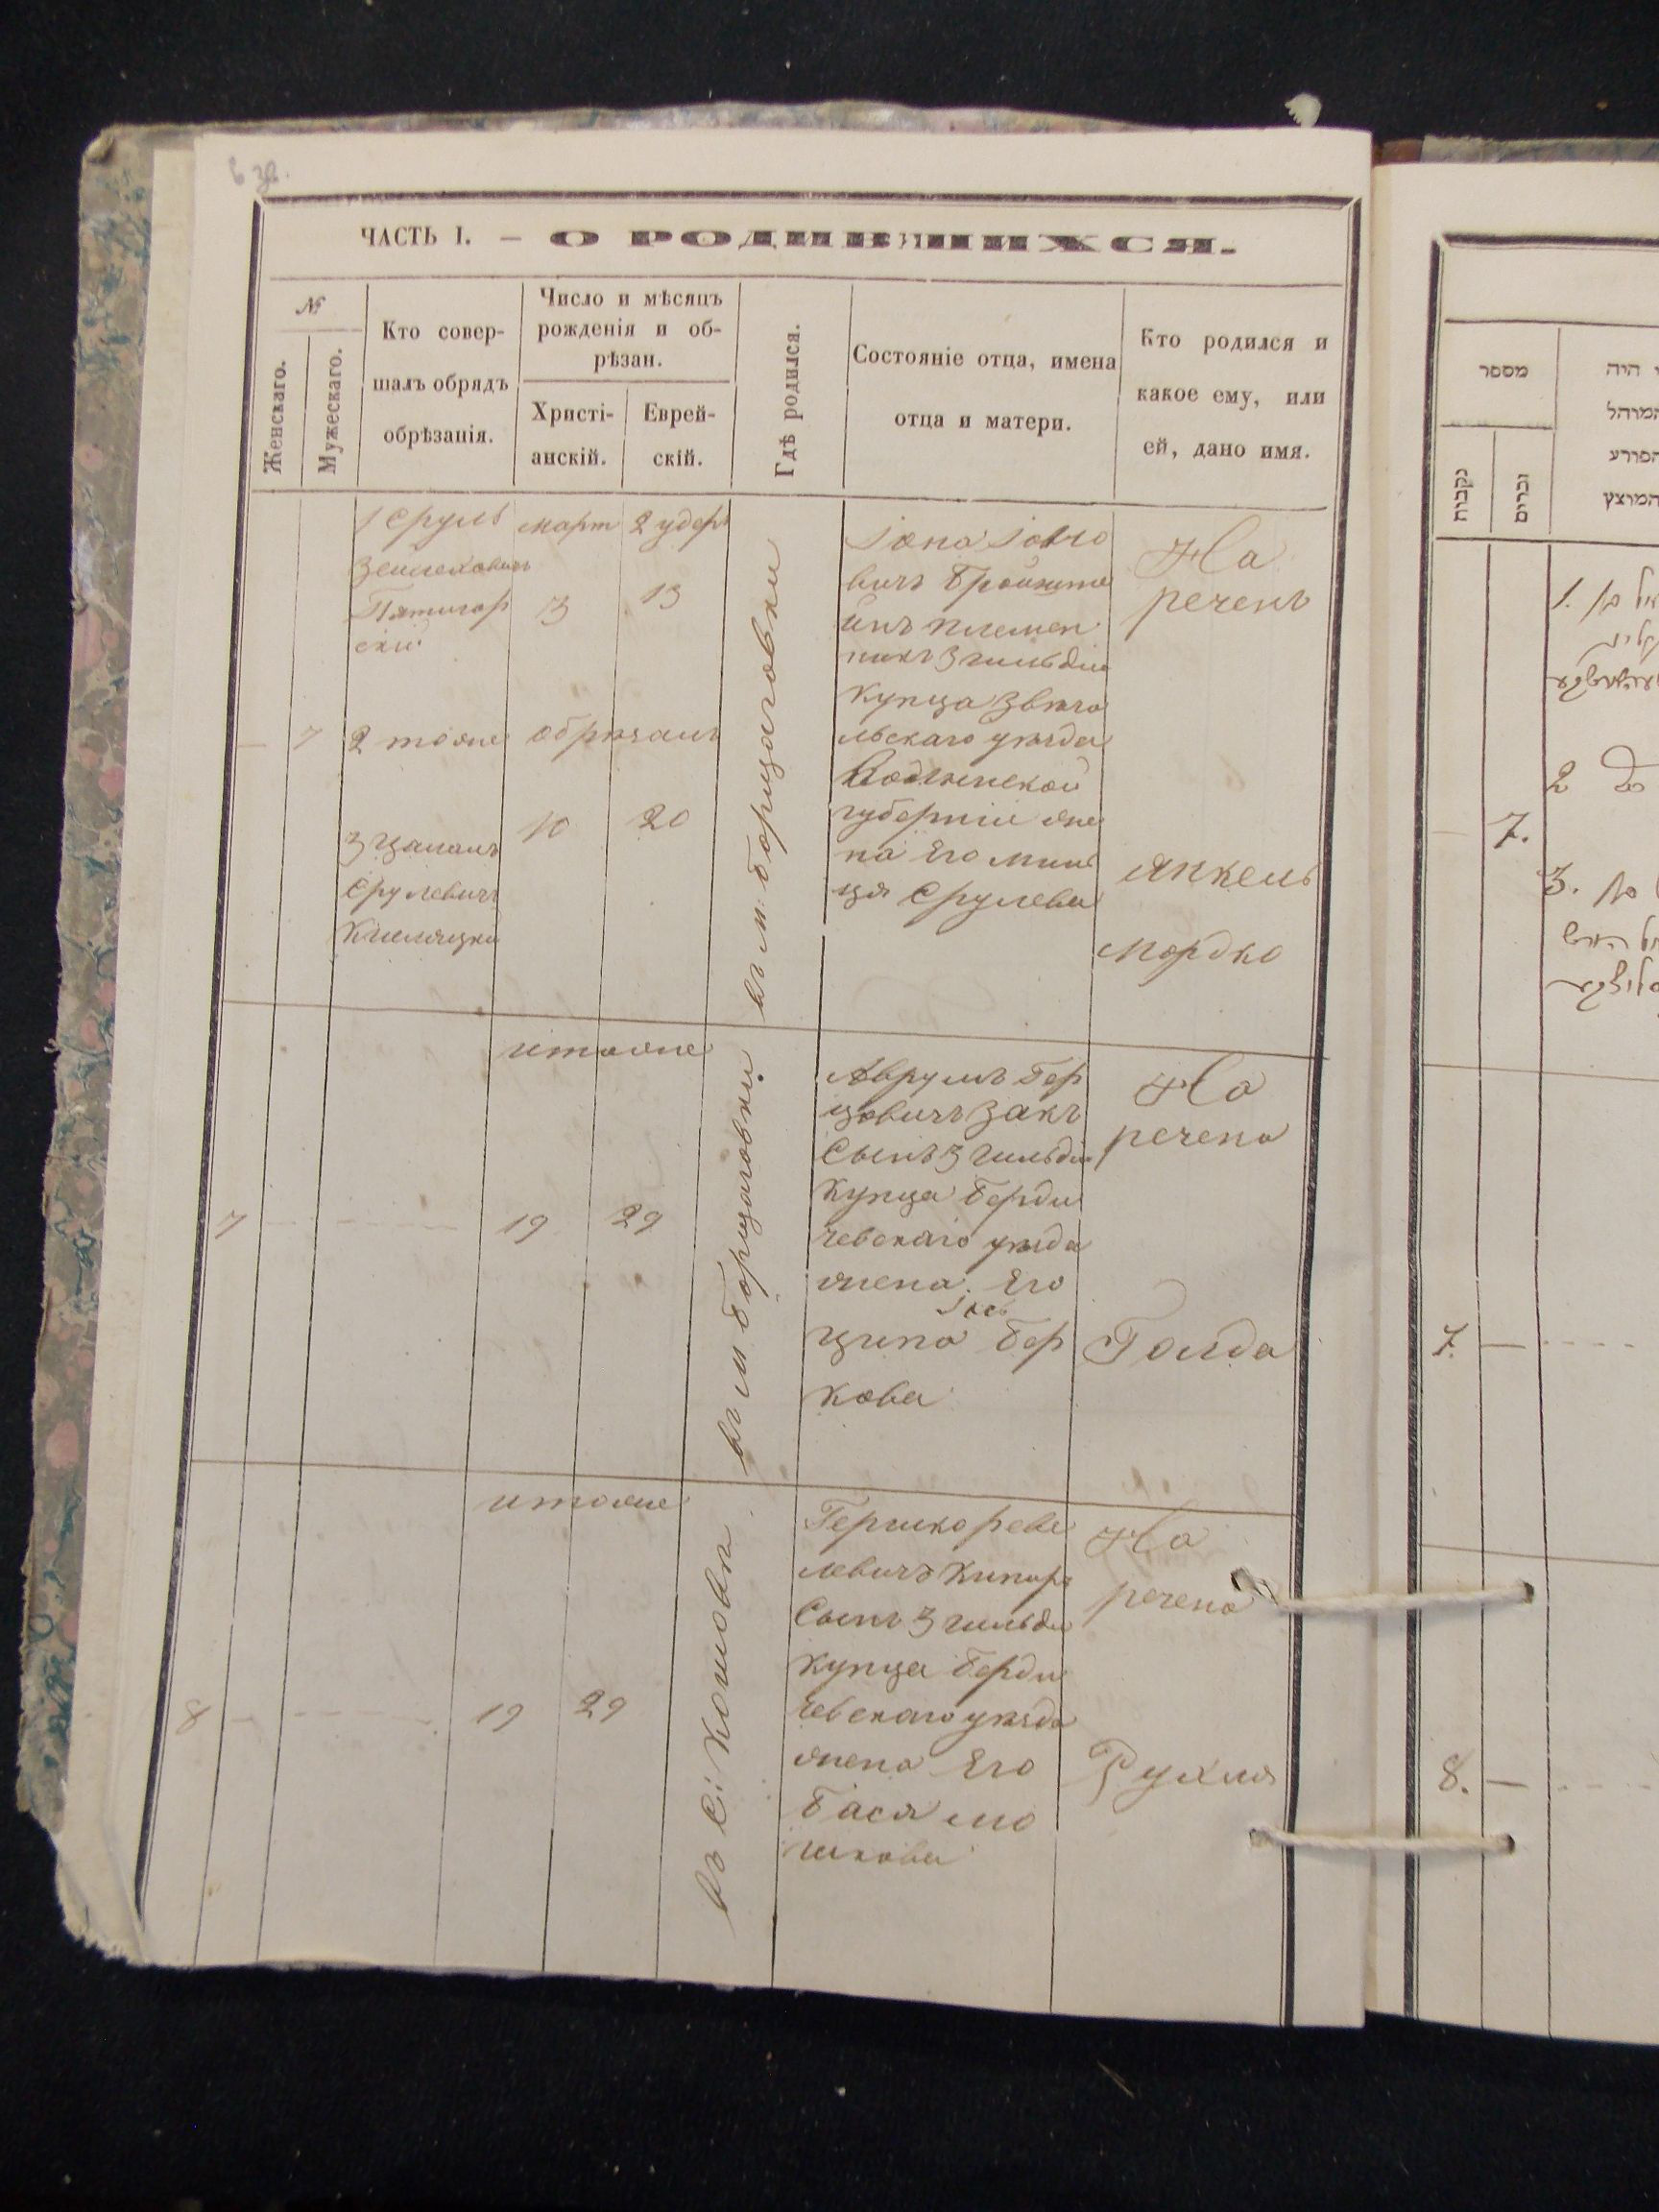 ЧАСТЬ I. — О РОДИВШИХСЯ.
№
Женскаго.
Мужескаго.
Кто совер-
шалъ обрядъ
обрѣзанія.
Число и мѣсяцъ
рожденія и об-
рѣзан.
Христі-
анскій.
Еврей-
скій.
Гдѣ родился.
Состояніе отца, имена
отца и матери.
Кто родился и
какое ему, или
ей, дано имя.
— 7
1 Сруль
Пятигор
скій
2 тоже
3 Цалаль
Срулевичъ
март
3
обрѣзанъ
10
2 удеръ
13
20
въ м. Борщаговки
Іона
вичъ
инъ племен
никъ 3 гильдіи
купца Звяго
льскаго уѣзда
Волынской
губерніи же
на Его
Срулева
На
реченъ
Янкель
Мордко
7
итоже
19 29
въ м Борщаговкѣ
Аврумъ Бер
Закъ
Сынъ 3 гильдіи
купца Берди
чевскаго уѣзда
жена Его
Ципа Бер
кова
На
речена
Голда
8
итоже
19 29
въ С:
Гершко
левичъ
Сынъ 3 гильди
купца Берди
чевскаго уѣзда
жена Его
Бася Мо
шкова
На
речена
Рухля
מספר
נקבות
זכרים
היה
המוהל
הפורע
המוצץ
1.
2
3.
7.
7. —
8. —